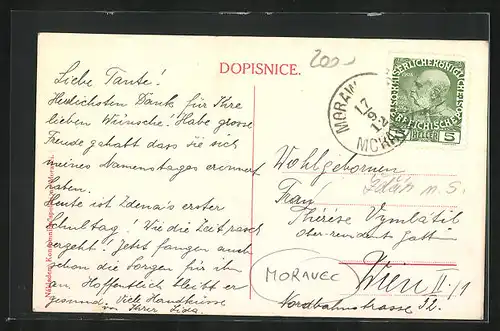 DOPISNICE.
200.-
Liebe Tante!
Herzlichsten Dank für Ihre
lieben Wünsche! Habe grosse
Freude gehabt dass sie sich
meines Namenstages erinnert
haben.
Heute ist Zdena's erster
Schultag! Wie die Zeit rasch
vergeht! Jetzt fangen auch
schon die Sorgen für ihn
an. Hoffentlich bleibt er
gesund. Viele Handküsse
von Ihrer
MORAW
17
9
12
5
HELLER
Wohlgeboren
Frau
Thérèse
Wien II./1
Nordbahnstrasse 32.
MORAVEC